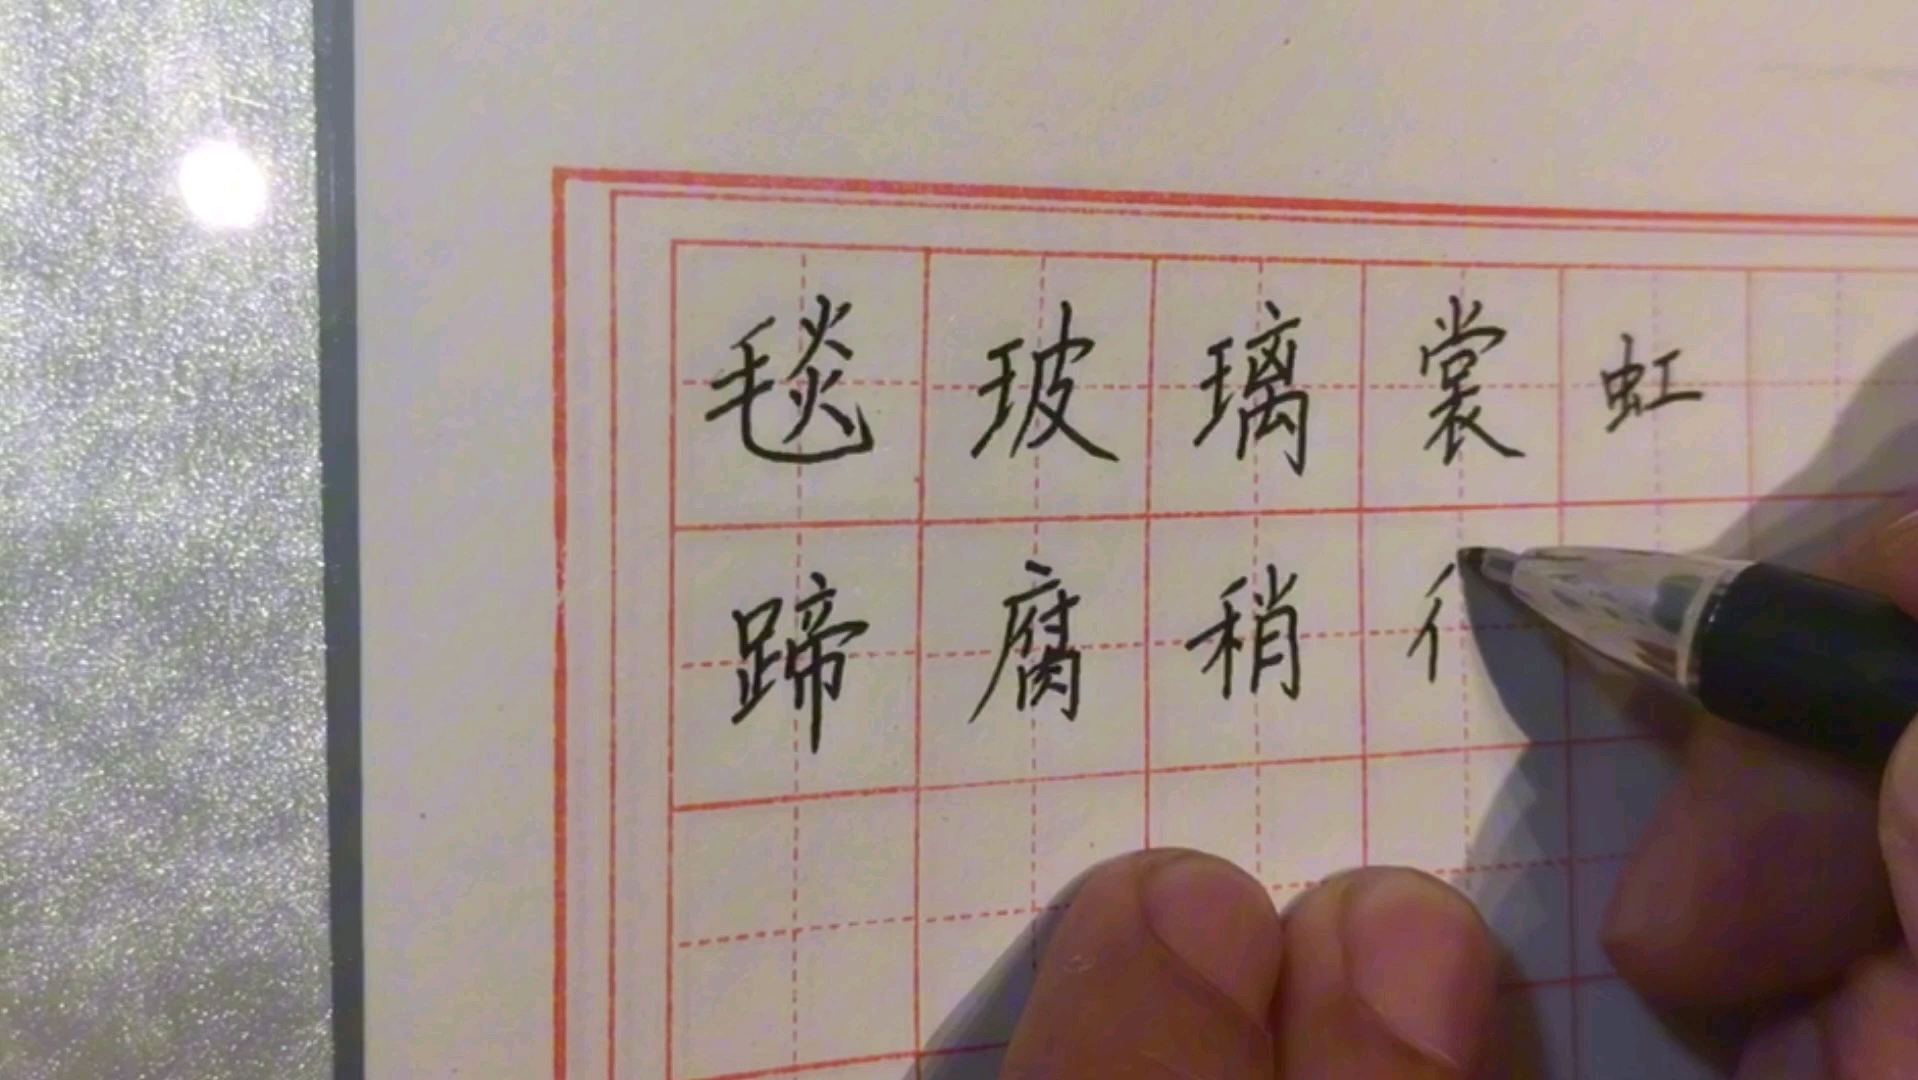 毯玻璃裳虹
蹄腐稍